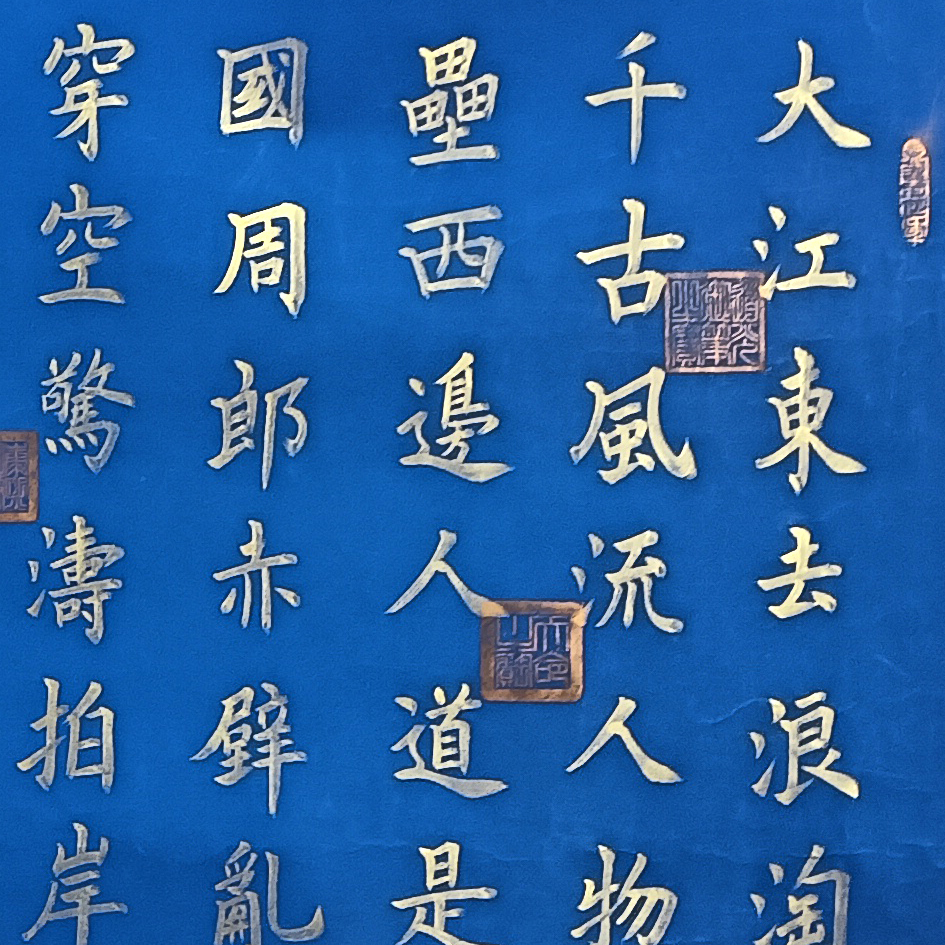 大江東去浪淘
千古風流人物
壘西邊人道是
國周郎赤壁亂
穿空驚濤拍岸